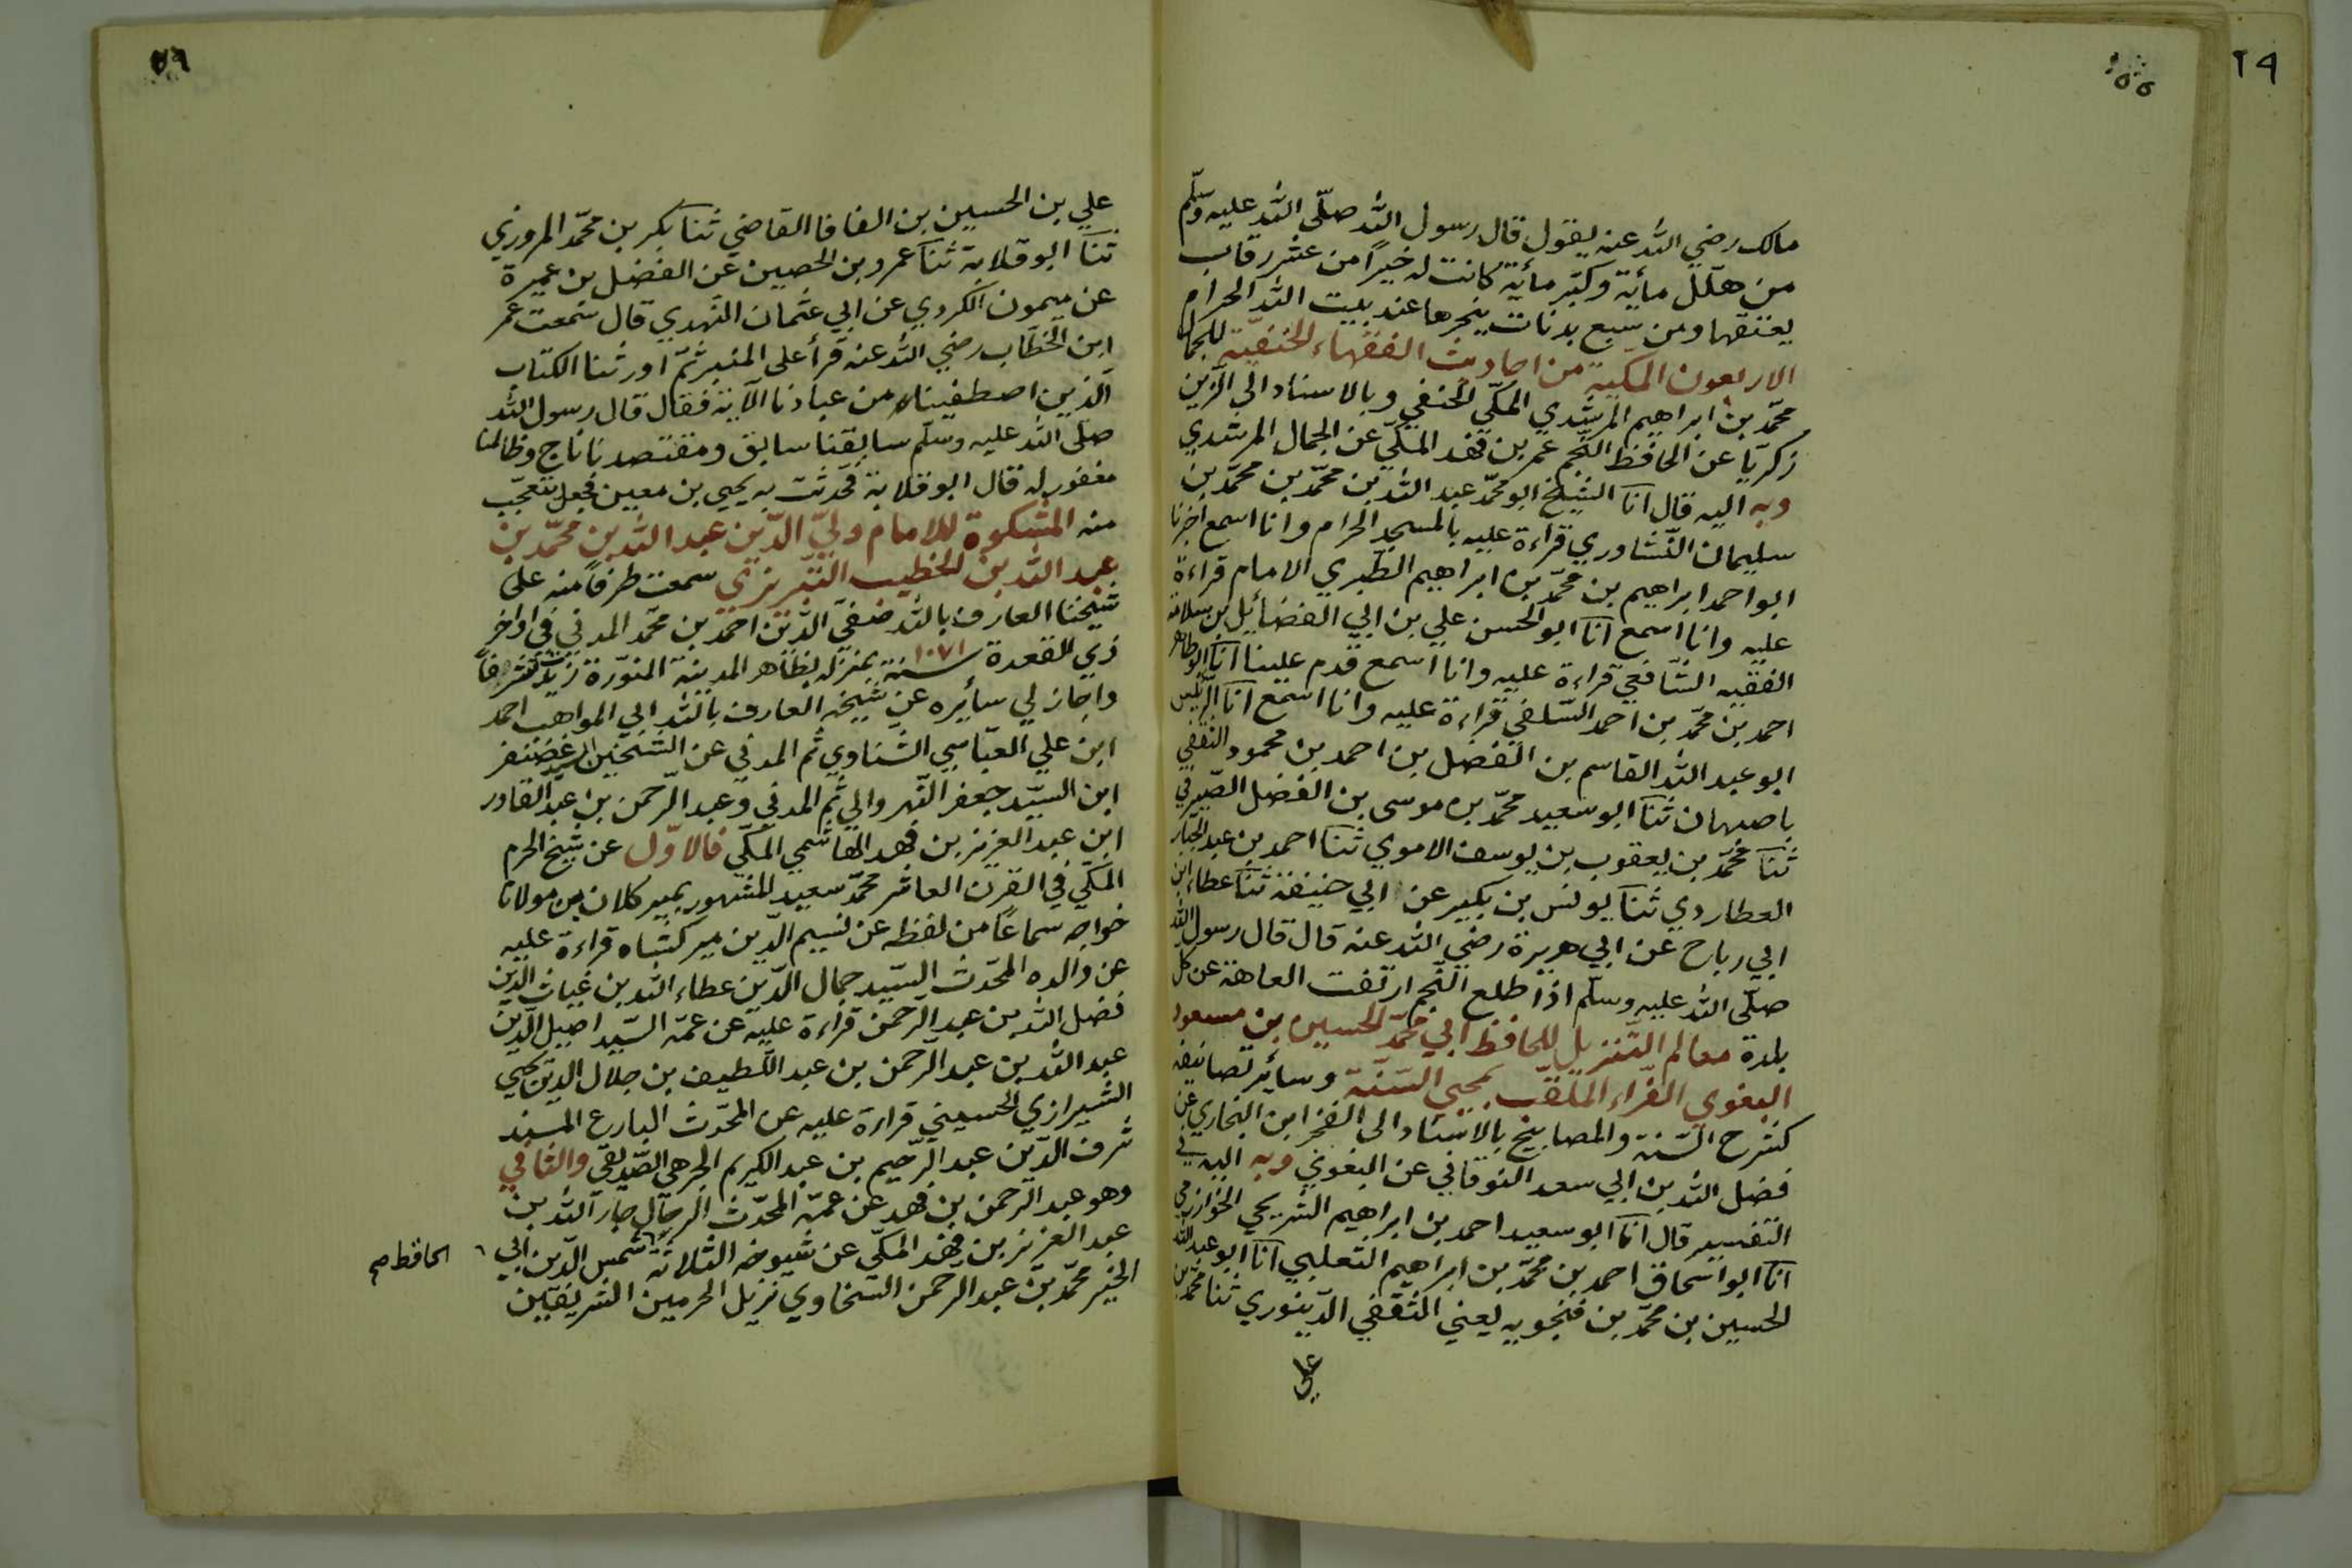 مالك رضي الله عنه يقول قال رسول الله صلّى الله عليه وسلّم
من هلّل مأية وكبّر مأية كانت له خيراً من عشر رقاب
يعتقها ومن سبع بدنات ينحرها عند بيت الله الحرام
الاربعون المكّية من احاديث الفقهاء الحنفيّة للجمال
محمّد بن ابراهيم المرشدي المكّي الحنفي وبالاسناد الى الزين
زكريّا عن الحافظ النّجم عمر بن فهد المكّي عن الجمال المرشدي
وبه اليه قال انآ الشيخ ابو محمّد عبد الله بن محمّد بن محمّد بن
سليمان النّشاوري قراءة عليه بالمسجد الحرام وانا اسمع اخبرنا
ابو احمد ابراهيم بن محمّد بن ابراهيم الطّبري الامام قراءة
عليه وانا اسمع انآ ابو الحسن علي بن ابي الفضائل بن سلامة
الفقيه الشّافعي قراءة عليه وانا اسمع قدم علينا انآ ابو طاهر
احمد بن محمّد بن احمد السّلفي قراءة عليه وانا اسمع انآ الرّئيس
ابو عبد الله القاسم بن الفضل بن احمد بن محمود الثقفي
باصبهان ثنآ ابو سعيد محمّد بن موسى بن الفضل الصّيرفي
ثنآ محمّد بن يعقوب بن يوسف الاموي ثنآ احمد بن عبد الجبار
العطاردي ثنآ يونس بن بكير عن ابي حنيفة ثنآ عطاء ابن
ابي رباح عن ابي هريرة رضي الله عنه قال قال رسول الله
صلّى الله عليه وسلّم اذا طلع النّجم ارتفعت العاهة عن كل
بلدة معالم التّنزيل للحافظ ابي محمّد الحسين بن مسعود
البغوي الفرّاء الملقّب بمحيي السّنّة وسائر تصانيفه
كشرح السّنة والمصابيح بالاسناد الى الفخر ابن البخاري عن
فضل الله بن ابي سعد النوقاني عن البغوي وبه اليه في
التفسير قال انآ ابو سعيد احمد بن ابراهيم الشّريحي الخوارزمي
انآ ابو اسحاق احمد بن محمّد بن ابراهيم الثعلبي انآ ابو عبد الله
الحسين بن محمّد بن فنجويه يعني الثقفي الدّينوري ثنا محمّد بن
علي
علي بن الحسين بن القافا القاضي ثنآ بكر بن محمّد المروزي
ثنآ ابو قلابة ثنآ عمرو بن الحصين عن الفضل بن عميرة
عن ميمون الكردي عن ابي عثمان النّهدي قال سمعت عمر
ابن الخطّاب رضي الله عنه قرأ على المنبر ثمّ اورثنا الكتاب
الّذين اصطفيناه من عبادنا الآية فقال قال رسول الله
صلّى الله عليه وسلّم سابقنا سابق ومقتصدنا ناج وظالمنا
مغفور له قال ابو قلابة فحدّثت به يحيى بن معين فجعل يتعجّب
منه المشكوة للامام وليّ الدّين عبد الله بن محمّد بن
عبد الله بن الخطيب التّبريزي سمعت طرفاً منه على
شيخنا العارف بالله صفيّ الدّين احمد بن محمّد المدني في اواخر
ذي القعدة سنة ١٠٧١ بمنزله بظاهر المدينة المنوّرة زيدت شرفاً
واجاز لي سائره عن شيخه العارف بالله ابي المواهب احمد
ابن علي العبّاسي الشّناوي ثم المدني عن الشّيخين السيد غضنفر
ابن السيّد جعفر النّهروالي ثم المدني وعبد الرّحمن بن عبد القادر
ابن عبد العزيز بن فهد الهاشمي المكّي فالاوّل عن شيخ الحرم
المكّي في القرن العاشر محمّد سعيد المشهور بمير كلان بن مولانا
خواجه سماعاً من لفظه عن نسيم الدّين ميركشاه قراءة عليه
عن والده المحدّث السّيد جمال الدّين عطاء الله بن غياث الدّين
فضل الله بن عبد الرّحمن قراءة عليه عن عمّه السّيد اصيل الدّين
عبد الله بن عبد الرّحمن بن عبد اللّطيف بن جلال الدين يحيى
الشيرازي الحسيني قراءة عليه عن المحدّث البارع المسند
شرف الدّين عبد الرّحيم بن عبد الكريم الجرهي الصّدّيقي والثاني
وهو عبد الرحمن بن فهد عن عمّه المحدّث الرحّال جار الله بن
عبد العزيز بن فهد المكّي عن شيوخه الثلاثة شمس الدّين ابي
الحافظ صح
الخير محمّد بن عبد الرحمن السّخاوي نزيل الحرمين الشريفين